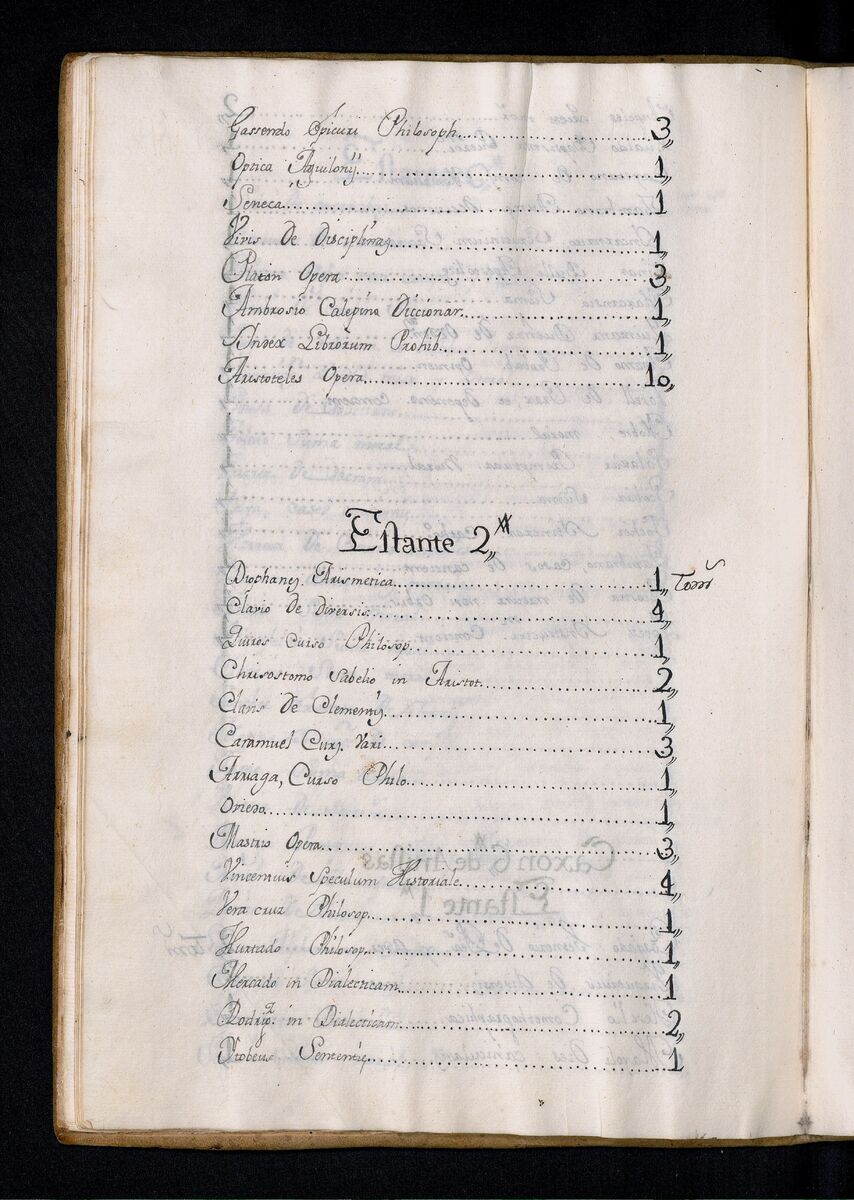 Gassendo Epicuri Philosoph. 3,,
Optica Aquilonij. 1,,
Seneca. 1
Vivis De Disciplinas 1,,
Platon Opera 3,,
Ambrosio Calepino Diccionar. 1,,
Index Librorum Prohib. 1,,
Aristoteles Opera 10,,
Estante 2,,
Diophanes. Arismetica. 1,, Toms
Clavio de diversis. 4,,
Quiros Curso Philosop. 1,,
Chrisostomo Sabelio in Aristot. 2,,
Claris de Clementis 1,,
Caramuel Curs. Vari. 3,,
Arriaga, Curso Philo. 1,,
Oviedo. 1,,
Mastrio Opera. 3,,
Vincemius Speculum Historiale. 4,,
Vera cruz Philosop. 1,,
Hurtado Philosop. 1,,
Mercado in Dialecticam. 1
Rodrigz. in Dialecticam 2,,
Stobeus Sententie. 1